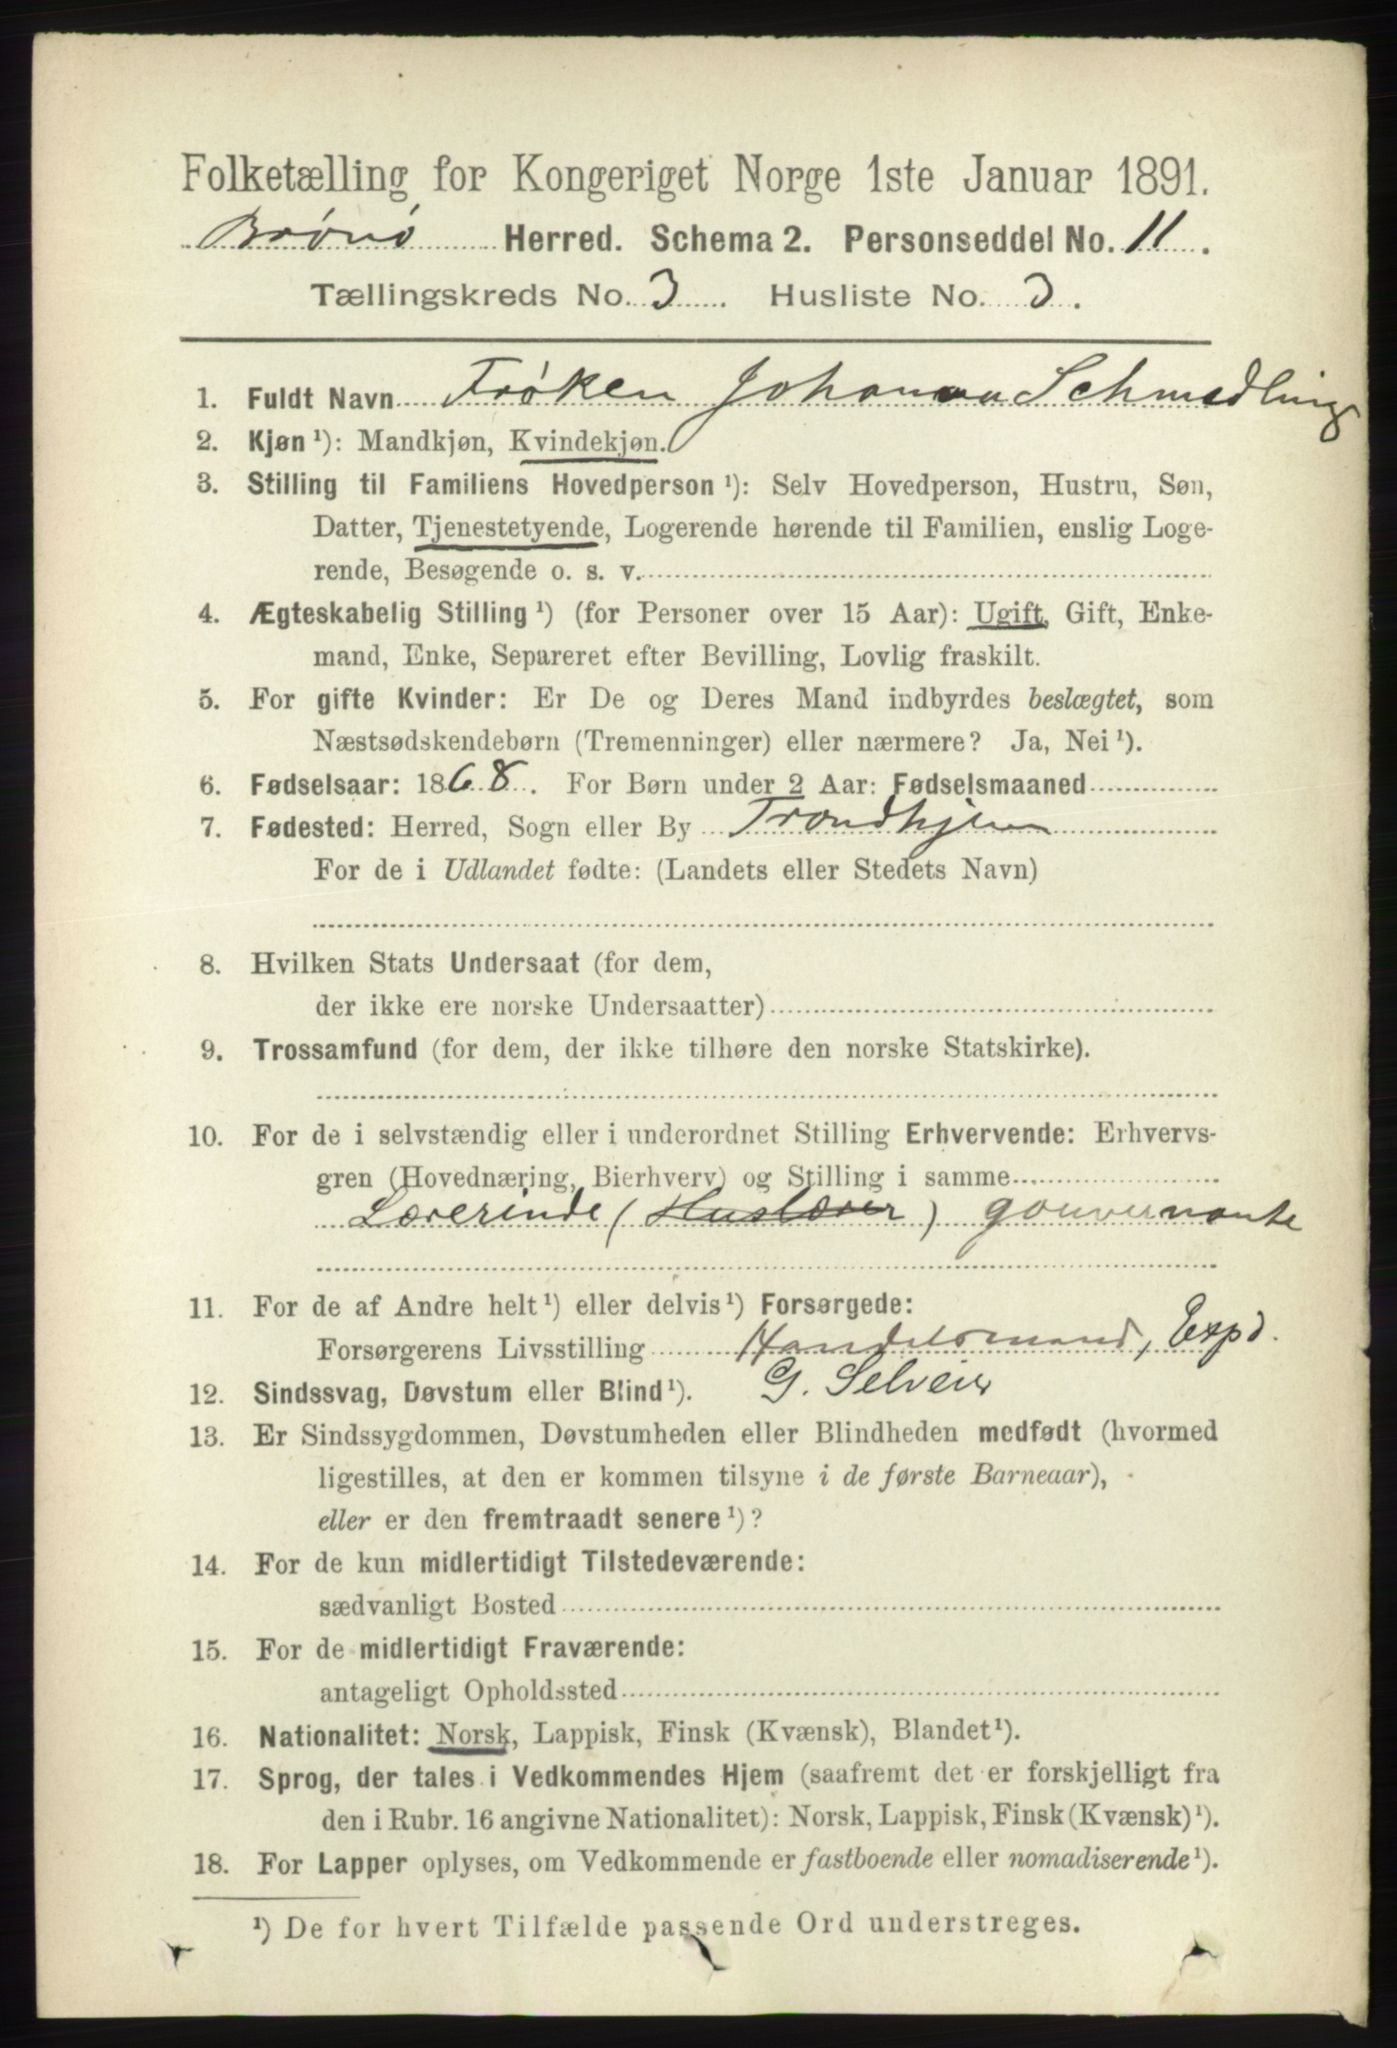 Folketælling for Kongeriget Norge 1ste Januar 1891.
Brønø Herred. Schema 2. Personseddel No. 11.
Tællingskreds No. 3. Husliste No. 3.
1. Fuldt Navn Frøken Johanna Schmedling
2. Kjøn ¹): Mandkjøn, Kvindekjøn.
3. Stilling til Familiens Hovedperson ¹): Selv Hovedperson, Hustru, Søn,
Datter, Tjenestetyende, Logerende hørende til Familien, enslig Loge-
rende, Besøgende o. s. v.
4. Ægteskabelig Stilling ¹) (for Personer over 15 Aar): Ugift, Gift, Enke-
mand, Enke, Separeret efter Bevilling, Lovlig fraskilt.
5. For gifte Kvinder: Er De og Deres Mand indbyrdes beslægtet, som
Næstsødskendebørn (Tremenninger) eller nærmere? Ja, Nei ¹).
6. Fødselsaar: 1868. For Børn under 2 Aar: Fødselsmaaned
7. Fødested: Herred, Sogn eller By Trondhjem
For de i Udlandet fødte: (Landets eller Stedets Navn)
8. Hvilken Stats Undersaat (for dem,
der ikke ere norske Undersaatter)
9. Trossamfund (for dem, der ikke tilhøre den norske Statskirke).
10. For de i selvstændig eller i underordnet Stilling Erhvervende: Erhvervs-
gren (Hovednæring, Bierhverv) og Stilling i samme
Lærerinde (Huslærer) gouvernante
11. For de af Andre helt ¹) eller delvis ¹) Forsørgede:
Forsørgerens Livsstilling Handelsmand, Expd.
12. Sindssvag, Døvstum eller Blind ¹). G. Selveier
13. Er Sindssygdommen, Døvstumheden eller Blindheden medfødt (hvormed
ligestilles, at den er kommen tilsyne i de første Barneaar),
eller er den fremtraadt senere ¹)?
14. For de kun midlertidigt Tilstedeværende:
sædvanligt Bosted
15. For de midlertidigt Fraværende:
antageligt Opholdssted
16. Nationalitet: Norsk, Lappisk, Finsk (Kvænsk), Blandet ¹).
17. Sprog, der tales i Vedkommendes Hjem (saafremt det er forskjelligt fra
den i Rubr. 16 angivne Nationalitet): Norsk, Lappisk, Finsk (Kvænsk) ¹).
18. For Lapper oplyses, om Vedkommende er fastboende eller nomadiserende ¹).
¹) De for hvert Tilfælde passende Ord understreges.